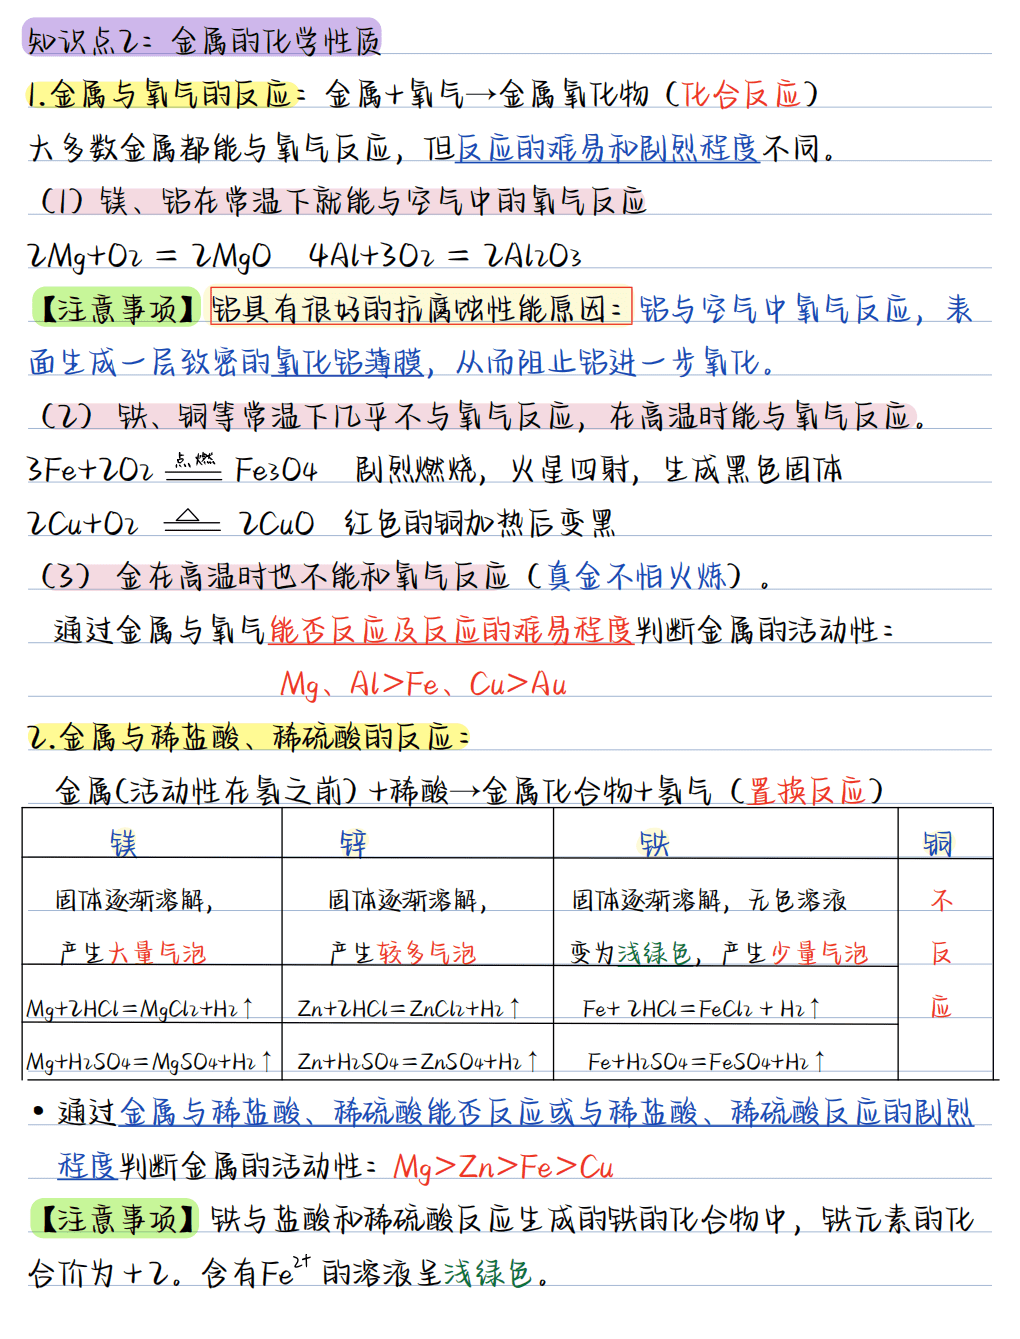 知识点2：金属的化学性质
1.金属与氧气的反应：金属+氧气→金属氧化物（化合反应）
大多数金属都能与氧气反应，但反应的难易和剧烈程度不同。
（1）镁、铝在常温下就能与空气中的氧气反应
2Mg+O2 = 2MgO 4Al+3O2 = 2Al2O3
【注意事项】铝具有很好的抗腐蚀性能原因：铝与空气中氧气反应，表
面生成一层致密的氧化铝薄膜，从而阻止铝进一步氧化。
（2）铁、铜等常温下几乎不与氧气反应，在高温时能与氧气反应。
3Fe+2O2 点燃 Fe3O4 剧烈燃烧，火星四射，生成黑色固体
2Cu+O2 △ 2CuO 红色的铜加热后变黑
（3）金在高温时也不能和氧气反应（真金不怕火炼）。
通过金属与氧气能否反应及反应的难易程度判断金属的活动性：
Mg、Al>Fe、Cu>Au
2.金属与稀盐酸、稀硫酸的反应：
金属(活动性在氢之前)+稀酸→金属化合物+氢气（置换反应）
镁 锌 铁 铜
固体逐渐溶解， 固体逐渐溶解， 固体逐渐溶解，无色溶液 不
产生大量气泡 产生较多气泡 变为浅绿色，产生少量气泡 反
Mg+2HCl=MgCl2+H2↑ Zn+2HCl=ZnCl2+H2↑ Fe+ 2HCl=FeCl2 + H2↑ 应
Mg+H2SO4=MgSO4+H2↑ Zn+H2SO4=ZnSO4+H2↑ Fe+H2SO4=FeSO4+H2↑
• 通过金属与稀盐酸、稀硫酸能否反应或与稀盐酸、稀硫酸反应的剧烈
程度判断金属的活动性：Mg>Zn>Fe>Cu
【注意事项】铁与盐酸和稀硫酸反应生成的铁的化合物中，铁元素的化
合价为+2。含有Fe2+的溶液呈浅绿色。